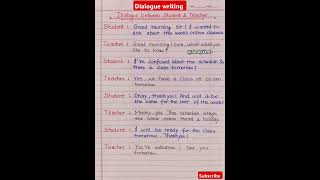 Dialogue writing
Dialogue between Student & Teacher
Student : Good morning Sir! I wanted to
ask about this week's online classes.
Teacher : Good morning! Sure, what would you
like to know?
Student : I'm confused about the schedule. Is
there a class tomorrow?
Teacher : Yes, we have a class at 10 am
tomorrow.
Student : Okay, thank you! And will it be
the same for the rest of the week?
Teacher : Mostly, yes. The schedule stays
the same unless there's a holiday.
Student : I will be ready for the class
tomorrow. Thank you!
Teacher : You're welcome! See you
tomorrow.
Subscribe